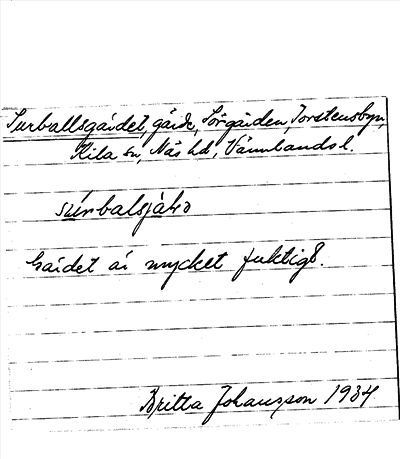 Surballsgärdet, gärde, Sörgården, Torstensbyn,
Kila sn, Näs hd, Värmlands l.
Gärdet är mycket fuktigt.
Britta Johansson 1934